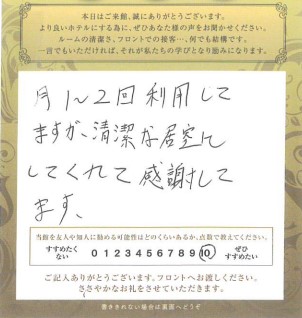 本日はご来館、誠にありがとうございます。
より良いホテルにする為に、ぜひあなた様の声をお聞かせください。
ルームの清潔さ、フロントでの接客…、何でも結構です。
一言でもいただければ、それが私たちの学びとなり励みになります。
月1〜2回利用して
ますが、清潔な居室に
してくれて感謝して
ます、
当館を友人や知人に勧める可能性はどのくらいあるか、点数で教えてください。
すすめたくない 0 1 2 3 4 5 6 7 8 9 10 ぜひすすめたい
ご記入ありがとうございます。フロントへお渡しください。
ささやかなお礼をさせていただきます。
書ききれない場合は裏面へどうぞ